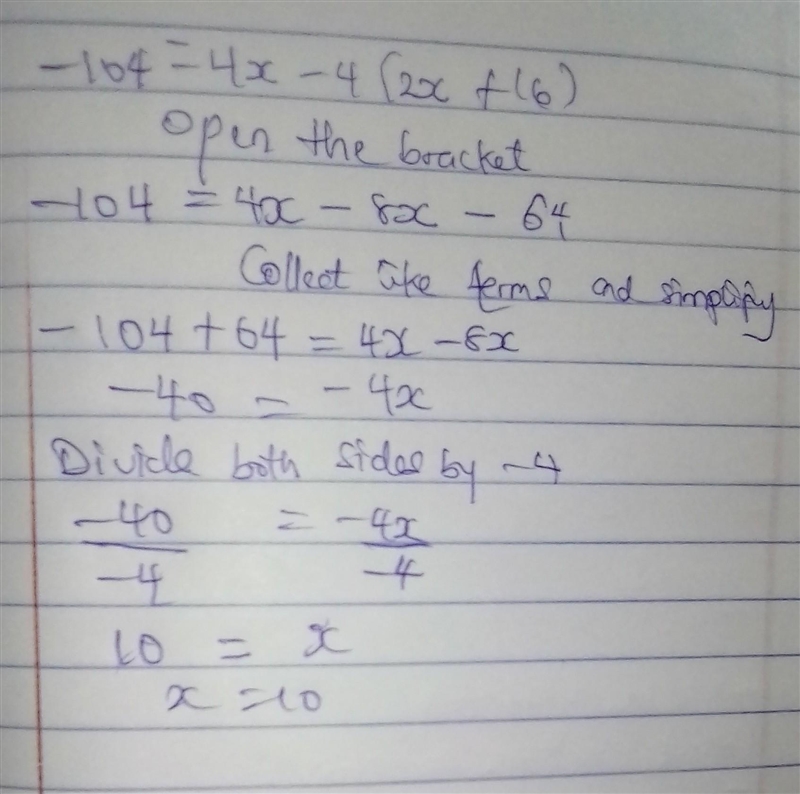 -104 = 4x - 4 (2x + 16)
Open the bracket
-104 = 4x - 8x - 64
Collect like terms and simplify
-104 + 64 = 4x - 8x
-40 = -4x
Divide both sides by -4
-40/-4 = -4x/-4
10 = x
x = 10